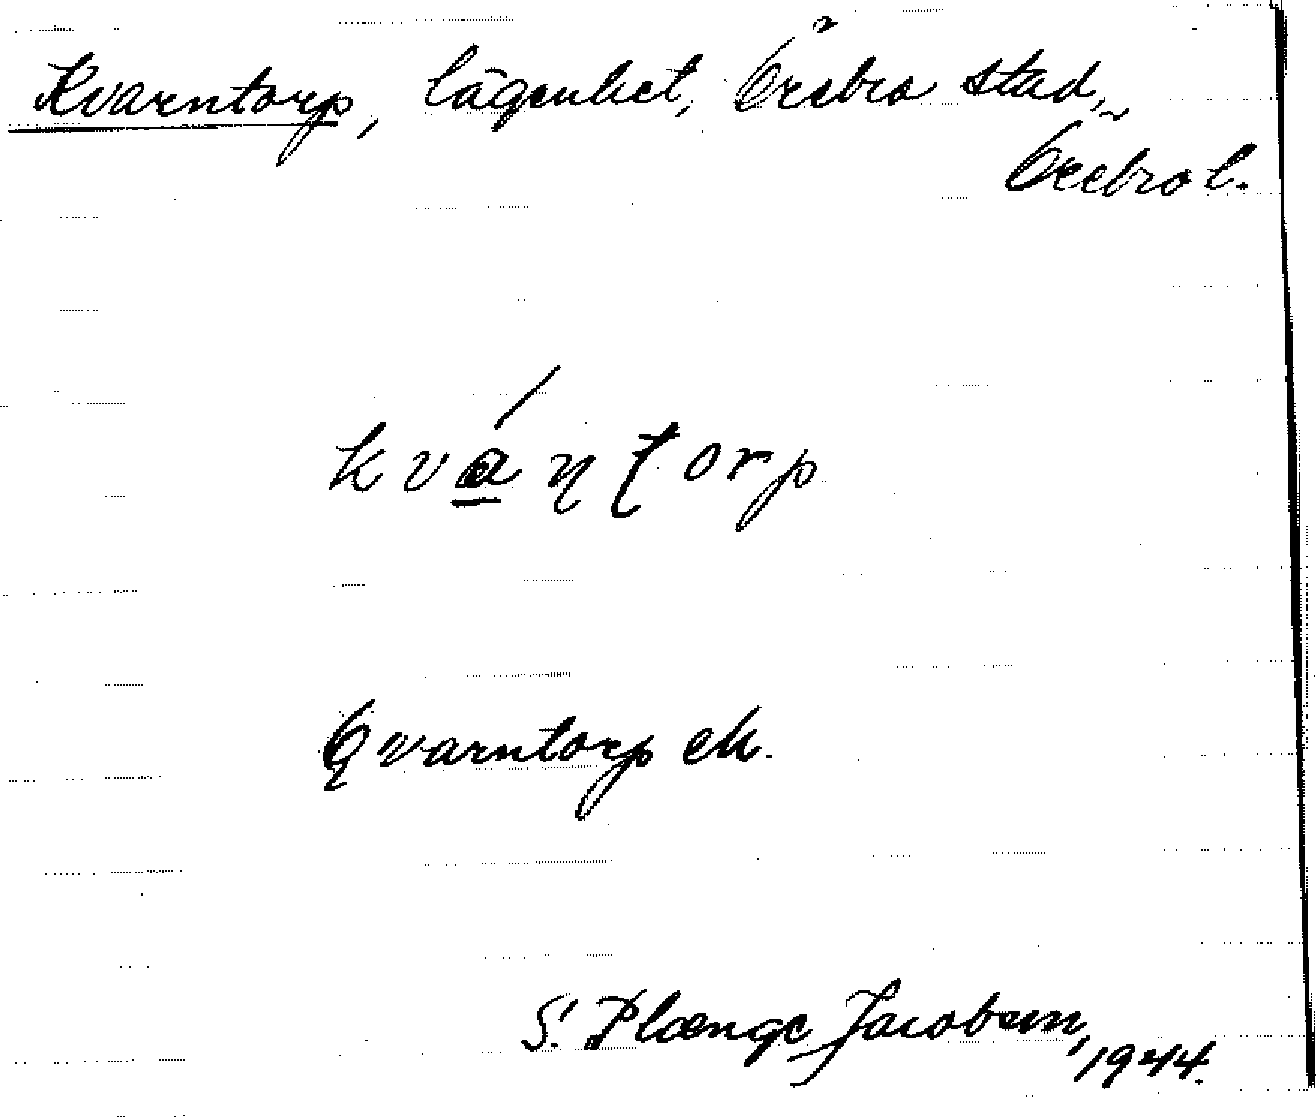 Kvarntorp, lägenhet, Örebro stad,
Örebro l.
kvánʈorp
Qvarntorp ek.
S. Plœnge Jacobsen,
1944.